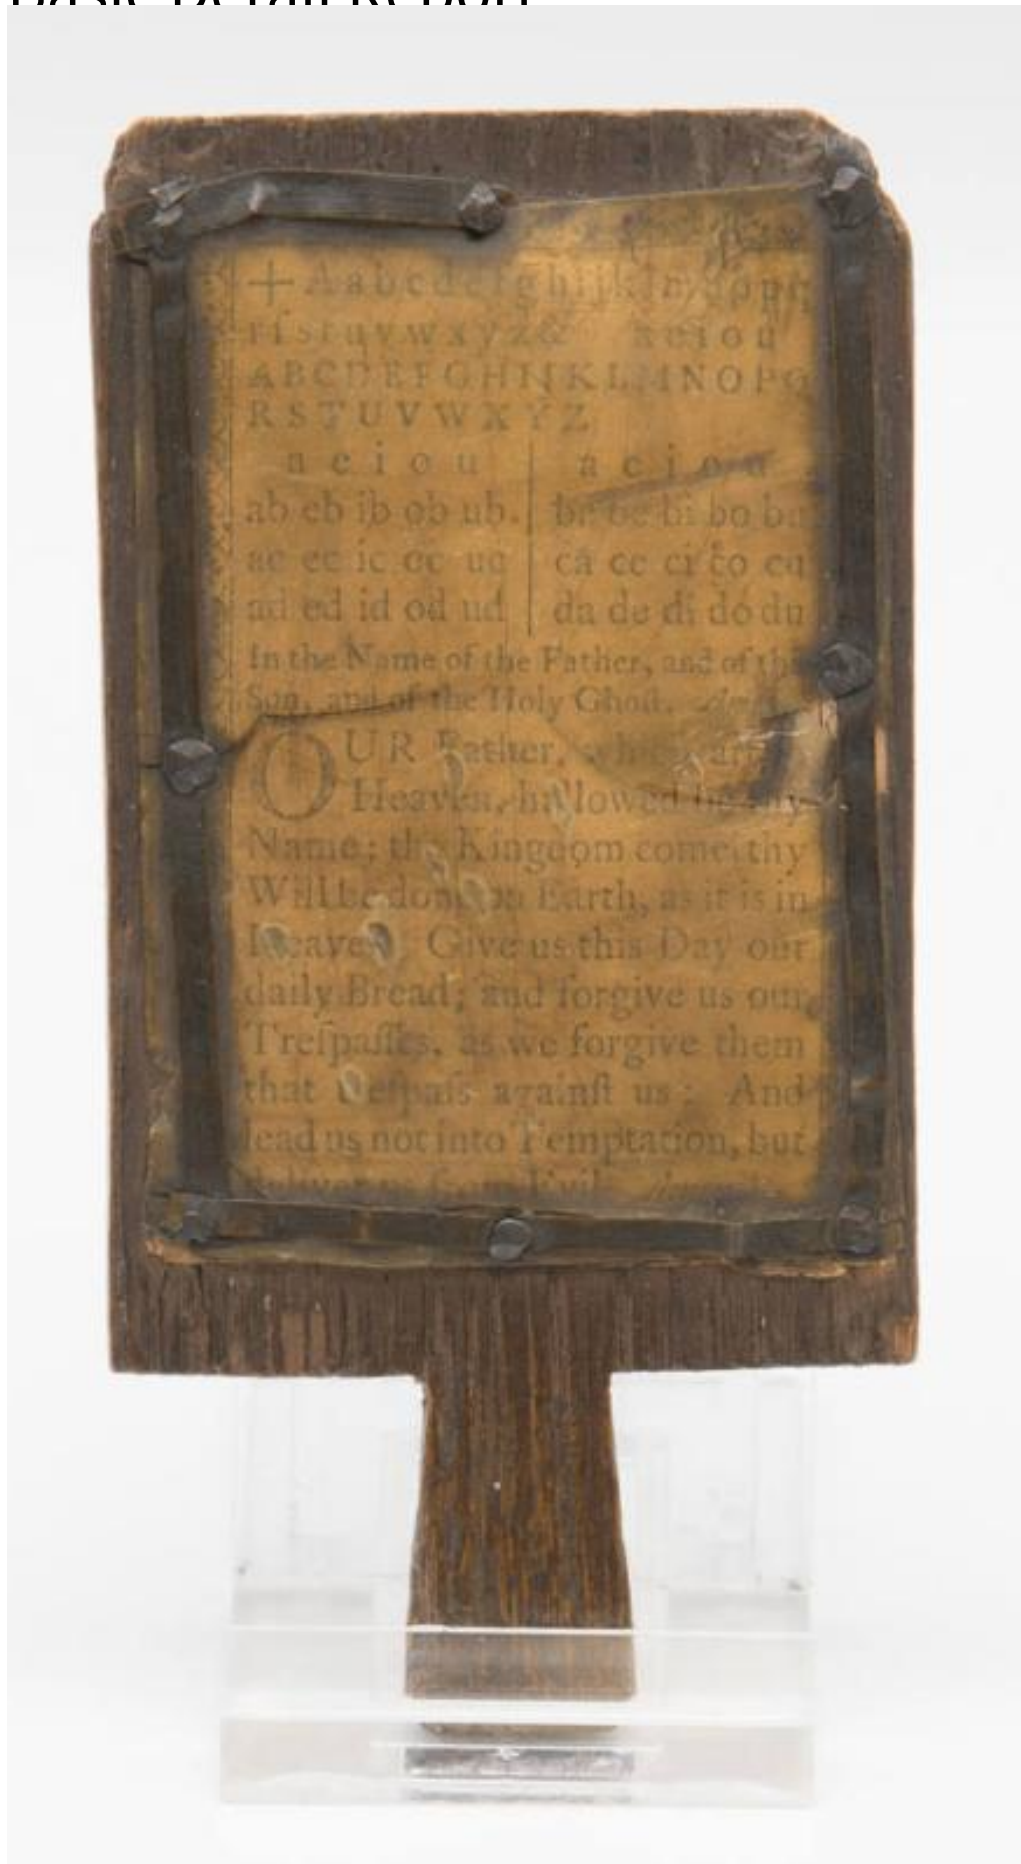 Basic Detail Report
+ A a b c d e f g h i j k l m n o p q
r ſ s t u v w x y z & a e i o u
A B C D E F G H I J K L M N O P Q
R S T U V W X Y Z
a e i o u | a e i o u
ab eb ib ob ub | ba be bi bo bu
ac ec ic oc uc | ca ce ci co cu
ad ed id od ud | da de di do du
In the Name of the Father, and of the
Son, and of the Holy Ghoſt.
OUR Father, which art
Heaven, hallowed be thy
Name; thy Kingdom come, thy
Will be done on Earth, as it is in
Heaven. Give us this Day our
daily Bread; and forgive us our
Treſpaſſes, as we forgive them
that treſpaſs againſt us: And
lead us not into Temptation, but
deliver us from Evil.